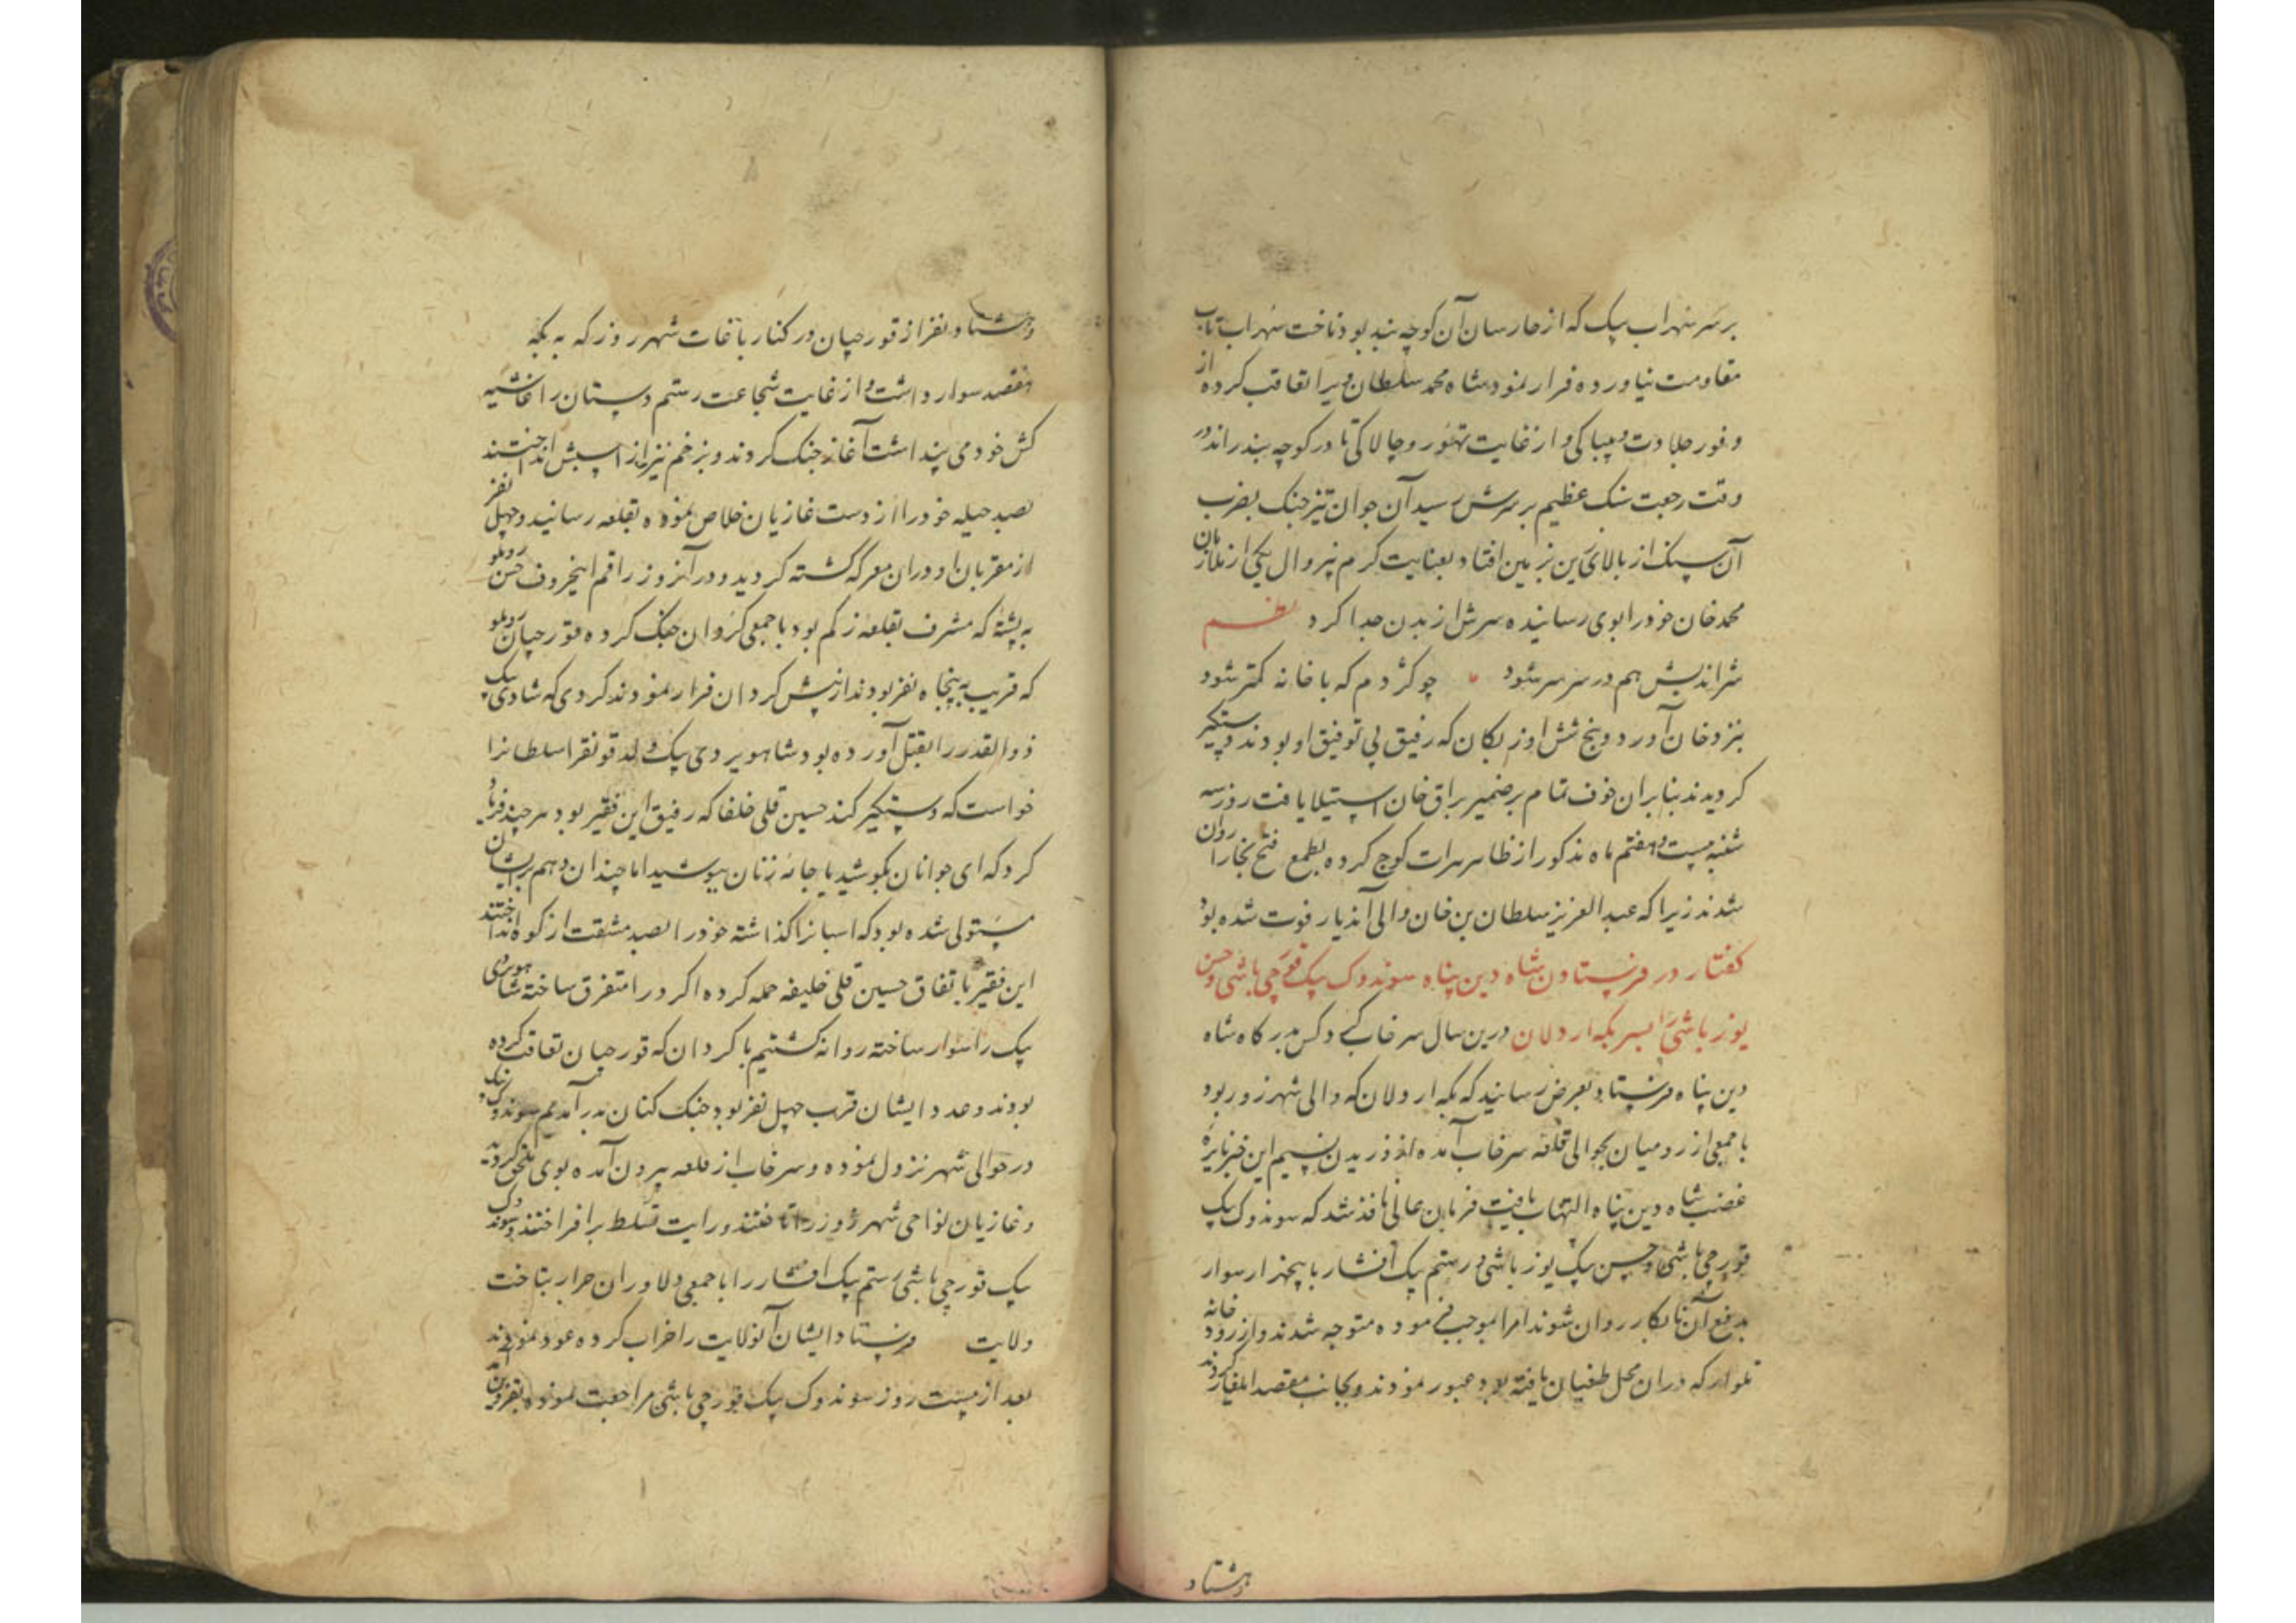 بر سر سهراب بیک که از حارسان آن کوچه بند بود تاخت سهراب تاب
مقاومت نیاورده فرار نمود شاه محمد سلطان ویرا تعاقب کرده از
وفور جلادت و بیباکی و از غایت تهور و چالاکی تا در کوچه بند راند در
وقت رجعت سنک عظیم بر سرش رسید آن جوان تیز جنک بضرب
آن سنک از بالای زین بزمین افتاد بعنایت کریم بیزوال یکی از ملازمان
محمد خان خود را بوی رسانیده سرش از بدن جدا کرد نظم
شر اندیش هم در سر شر شود چو کژدم که با خانه کمتر شود
بنزد خان آورد و پنج شش اوزبکان که رفیق بی توفیق او بودند دستکیر
کردیدند بنابران خوف تمام بر ضمیر براق خان استیلا یافت روز سه
شنبه بیست و هفتم ماه مذکور از ظاهر هرات کوچ کرده بطمع فتح بخارا روان
شدند زیرا که عبد العزیز سلطان بن خان والی آندیار فوت شده بود
کفتار در فرستادن شاه دین پناه سوندوک بیک قورچی باشی و حسن
یوز باشی را بسر بکه اردلان درین سال سرخاب کس بدرکاه شاه
دین پناه فرستاد بعرض رسانید که بکه اردلان که والی شهرزور بود
با جمعی از رومیان بحوالی قلعه سرخاب آمده از وزیدن نسیم این خبر نایره
غضب شاه دین پناه التهاب یافت فرمان عالی نافذ شد که سوندوک بیک
قورچی باشی و حسن بیک یوز باشی و رستم بیک افشار با پنجهزار سوار
بدفع آن نابکار روان شوند امرا بموجب فرموده متوجه شدند و از رودخانه
تلوار که دران محل طغیان یافته بود عبور نمودند و بجانب مقصد ایلغار کردند
وهشتاد
وهشتاد نفر از قورچیان در کنار باغات شهرزور که به بکه
هفتصد سوار داشت و از غایت شجاعت رستم دستان را غاشیه
کش خود می پنداشت آغاز جنک کردند و بزخم تیر از اسبش انداختند
بصد حیله خود را از دست غازیان خلاص نموده بقلعه رسانید و چهل نفر
از مقربان او دران معرکه کشته کردید و در آنروز راقم این حروف حسن روملو
به پشته که مشرف بقلعه زلم بود با جمعی کردان جنک کرده قورچیان روملو
که قریب به پنجاه نفر بودند از پیش کردان فرار نمودند کردی که شادی بیک
ذوالقدر را بقتل آورده بود شاهویردی بیک ولد قونقرا سلطانرا
خواست که دستکیر کند حسین قلی خلفا که رفیق این فقیر بود هر چند فریاد
کرد که ای جوانان بکوشید یا جامه زنان بپوشید اما چندان وهم بریشان
مستولی شده بود که اسبانرا کذاشته خود را بصد مشقت از کوه انداختند
این فقیر باتفاق حسین قلی خلیفه حمله کرده اکراد را متفرق ساخته شاهویردی
بیک را سوار ساخته روانه کشتیم با کردان که قورچیان تعاقب کرده
بودند و عدد ایشان قریب چهل نفر بود جنک کنان بدر آمدیم سوندوک بیک
در حوالی شهر نزول نموده و سرخاب از قلعه بیرون آمده بوی ملحق کردید
و غازیان نواحی شهرزور را تاختند و رایت تسلط برافراختند و سوندوک
بیک قورچی باشی رستم بیک افشار را با جمعی دلاوران جرار بتاخت
ولایت فرستاد ایشان آنولایت را خراب کرده عود نمودند
بعد از بیست روز سوندوک بیک قورچی باشی مراجعت نموده بقزوین آمد